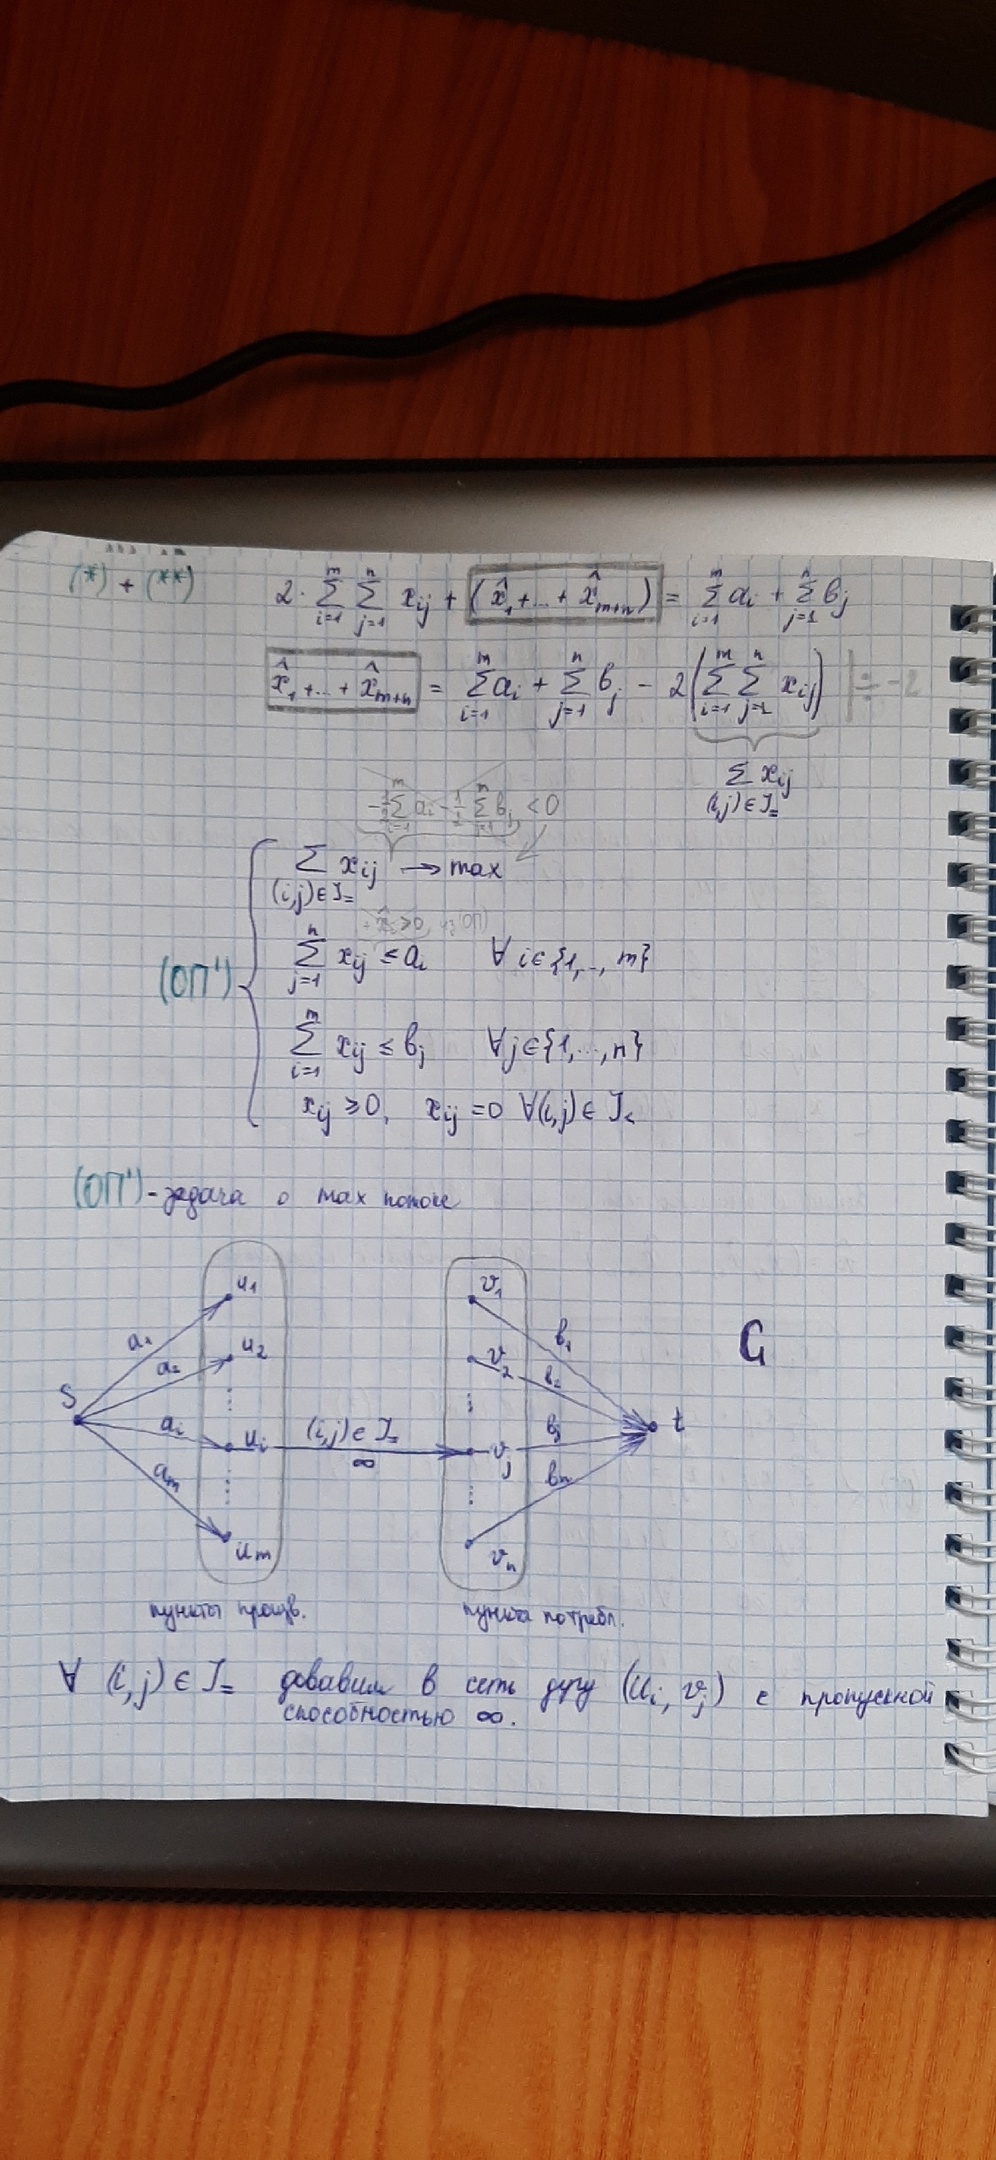 (*) + (**) 2·∑_{i=1}^{m} ∑_{j=1}^{n} x_{ij} + (x̂_1 + ... + x̂_{m+n}) = ∑_{i=1}^{m} a_i + ∑_{j=1}^{n} b_j
x̂_1 + ... + x̂_{m+n} = ∑_{i=1}^{m} a_i + ∑_{j=1}^{n} b_j - 2(∑_{i=1}^{m} ∑_{j=1}^{n} x_{ij}) | ÷ -2
∑_{(i,j)∈J_=} x_{ij}
-½∑_{i=1}^{m} a_i - ½∑_{j=1}^{n} b_j < 0
∑_{(i,j)∈J_=} x_{ij} → max
(ОП')
∑_{j=1}^{n} x_{ij} ≤ a_i ∀ i∈{1,..., m}
∑_{i=1}^{m} x_{ij} ≤ b_j ∀ j∈{1,...,n}
x_{ij} ≥ 0, x_{ij} = 0 ∀(i,j)∈ J_<
(ОП') - задача о max потоке
u_1 v_1
a_1 b_1 G
u_2 v_2
a_2 b_2
S a_i u_i (i,j)∈J_= ∞ v_j b_j t
a_m b_n
u_m v_n
пункты произв. пункты потребл.
∀ (i,j)∈J_= добавим в сеть дугу (u_i, v_j) с пропускной
способностью ∞.